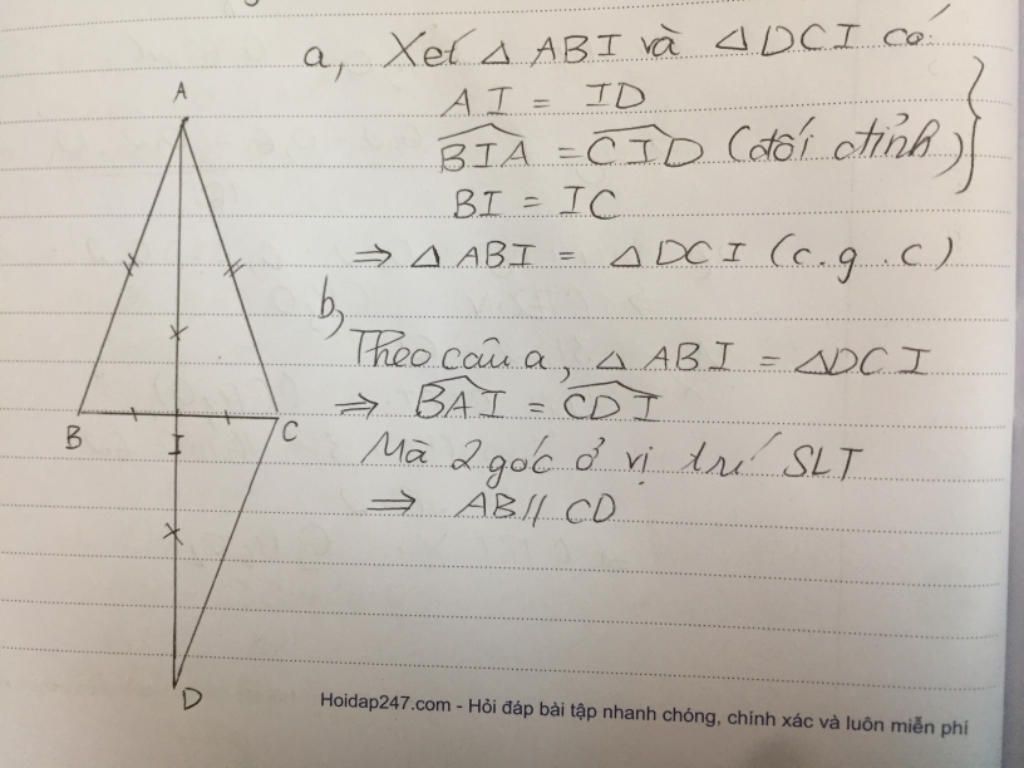 a, Xét △ ABI và △ DCI có:
AI = ID
BIA = CID (đối đỉnh)
BI = IC
⇒ △ ABI = △ DCI (c.g.c)
b,
Theo câu a, △ ABI = △DCI
⇒ BAI = CDI
Mà 2 góc ở vị trí SLT
⇒ AB// CD
A
B
I
C
D
Hoidap247.com - Hỏi đáp bài tập nhanh chóng, chính xác và luôn miễn phí